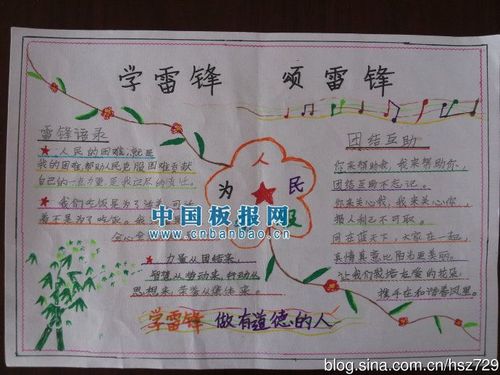 学雷锋 颂雷锋
雷锋语录
★人民的困难,就是
我的困难,帮助人民克服困难贡献
自己的一点力量,是我应尽的责任。
★我们吃饭是为了活着,可活
着不是为了吃饭。
全心全
★力量从团结来,
智慧从劳动来,行动从
思想来,荣誉从集体来。
人
为 ★ 民
团结互助
你来帮助我,我来帮助你。
团结互助不忘记。
你来关心我,我来关心你,
损人利己不可取。
同在蓝天下,大家在一起,
真情真意比阳光更美丽。
让我们栽培友爱的花朵,
携手在和谐春风里。
学雷锋 做有道德的人
中国板报网
www.cnbanbao.cn
blog.sina.com.cn/hsz729